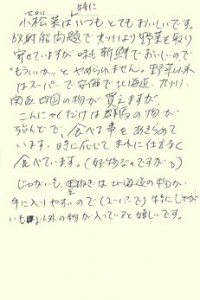 特に
小松菜はいつもとてもおいしいです。
放射能問題で 大分より野菜を取り
寄せていますが 味も新鮮でおいしいので
"もういいか。"と やめられません。野菜以外
はスーパーで安価で北海道、九州、
関西 四国の物が買えますが、
こんにゃくだけは群馬の物が
ほとんどで、食べる事をあきらめて
います。時に応じて まれに仕方なく
食べています。(好物なのですが)
じゃがいも 玉ねぎは北海道の物が
手に入りやすいので(スーパーで) 特にじゃが
いも以外の物が入っていると嬉しいです。